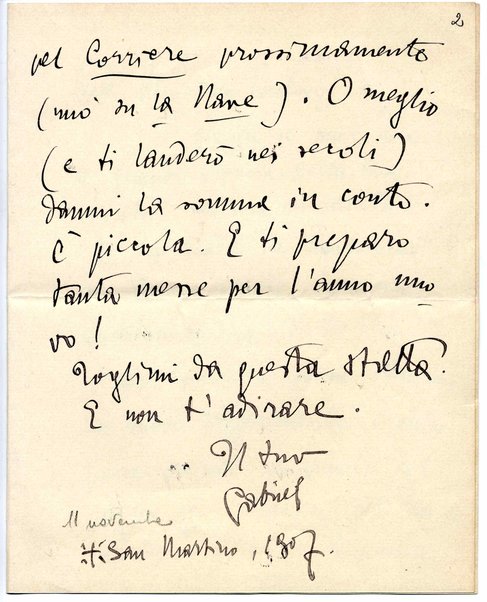 2
pel Corriere prossimamente
(uno su la Nave). O meglio
(e ti lauderò nei secoli)
dammi la somma in conto.
È piccola. E ti preparo
tanta messe per l'anno nuo
vo!
Toglimi da questa stretta.
E non t'adirare.
Il tuo
Gabriel
11 novembre
San Martino, 1907.